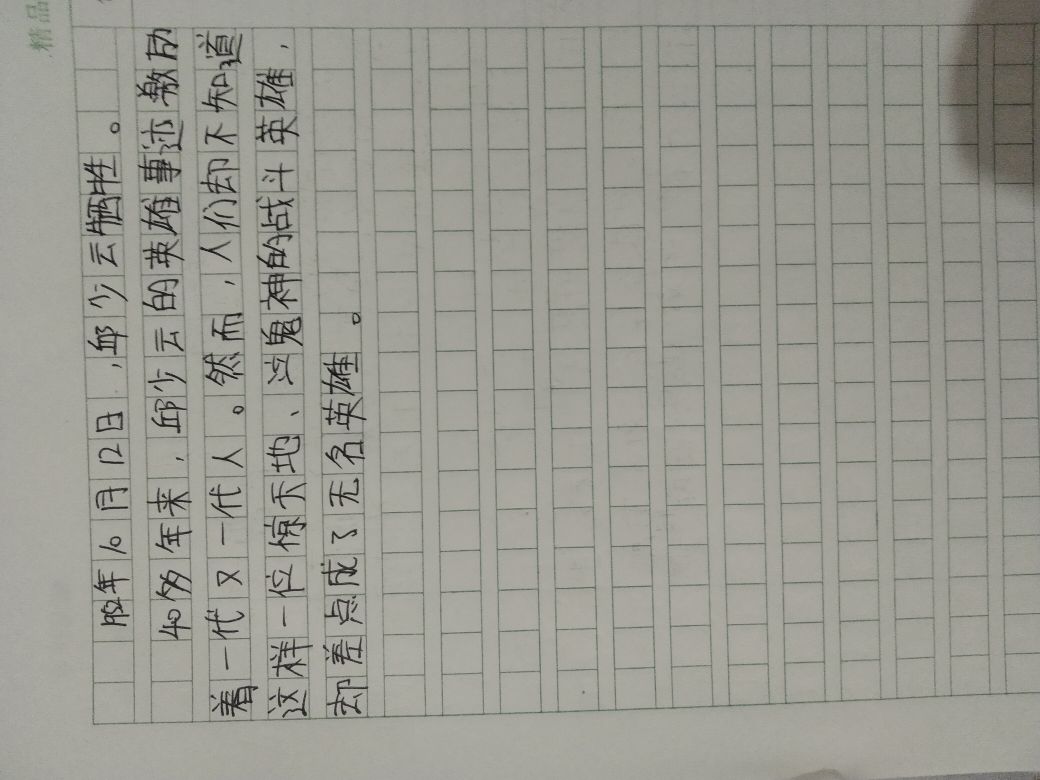 精品
1952年10月12日,邱少云牺牲。
40多年来,邱少云的英雄事迹激励
着一代又一代人。然而,人们却不知道
这样一位惊天地、泣鬼神的战斗英雄,
却差点成了无名英雄。